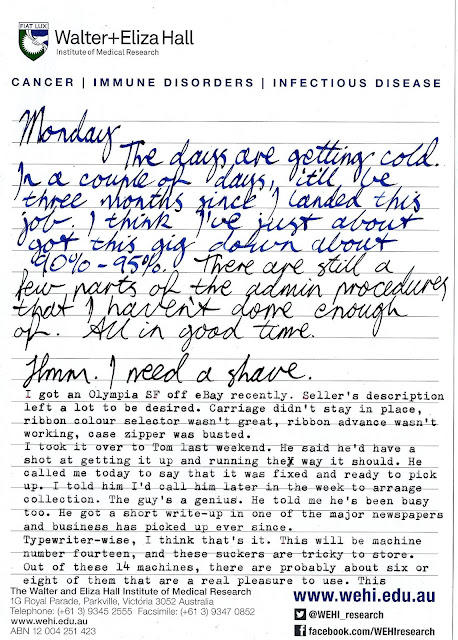 FIAT LUX
Walter+Eliza Hall
Institute of Medical Research
CANCER | IMMUNE DISORDERS | INFECTIOUS DISEASE
Monday
The days are getting cold.
In a couple of days, it'll be
three months since I landed this
job. I think I've just about
got this gig down about
90%-95%. There are still a
few parts of the admin procedures
that I haven't done enough
of. All in good time.
Hmm. I need a shave.
I got an Olympia SF off eBay recently. Seller's description
left a lot to be desired. Carriage didn't stay in place,
ribbon colour selector wasn't great, ribbon advance wasn't
working, case zipper was busted.
I took it over to Tom last weekend. He said he'd have a
shot at getting it up and running the way it should. He
called me today to say that it was fixed and ready to pick
up. I told him I'd call him later in the week to arrange
collection. The guy's a genius. He told me he's been busy
too. He got a short write-up in one of the major newspapers
and business has picked up ever since.
Typewriter-wise, I think that's it. This will be machine
number fourteen, and these suckers are tricky to store.
Out of these 14 machines, there are probably about six or
eight of them that are a real pleasure to use. This
The Walter and Eliza Hall Institute of Medical Research
1G Royal Parade, Parkville, Victoria 3052 Australia
Telephone: (+61 3) 9345 2555 Facsimile: (+61 3) 9347 0852
www.wehi.edu.au
ABN 12 004 251 423
www.wehi.edu.au
@WEHI_research
facebook.com/WEHIresearch